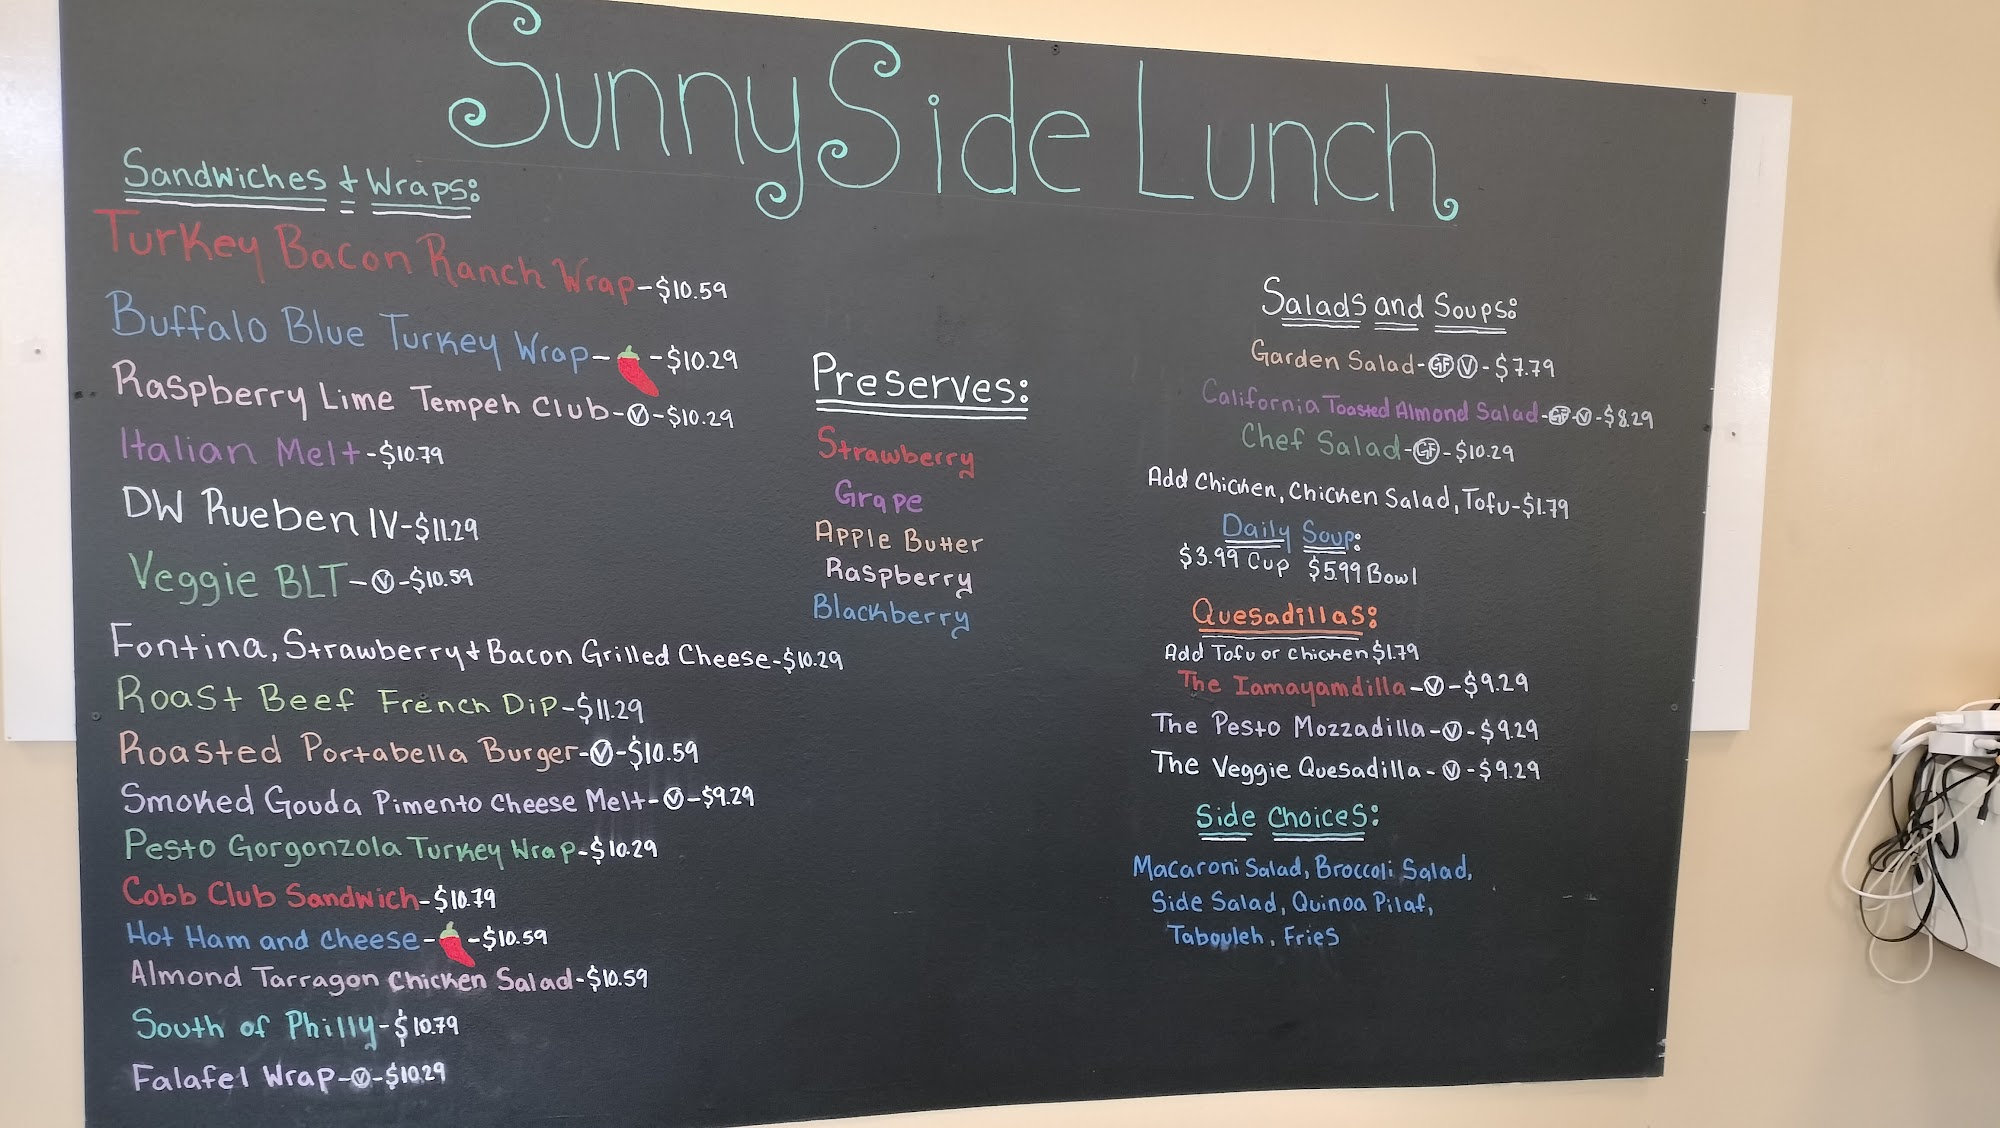 SunnySide Lunch
Sandwiches & Wraps:
Turkey Bacon Ranch Wrap-$10.59
Buffalo Blue Turkey Wrap--$10.29
Raspberry Lime Tempeh Club-Ⓥ-$10.29
Italian Melt-$10.79
DW Rueben IV-$11.29
Veggie BLT-Ⓥ-$10.59
Fontina, Strawberry & Bacon Grilled Cheese-$10.29
Roast Beef French Dip-$11.29
Roasted Portabella Burger-Ⓥ-$10.59
Smoked Gouda Pimento Cheese Melt-Ⓥ-$9.29
Pesto Gorgonzola Turkey Wrap-$10.29
Cobb Club Sandwich-$10.79
Hot Ham and Cheese--$10.59
Almond Tarragon Chicken Salad-$10.59
South of Philly-$10.79
Falafel Wrap-Ⓥ-$10.29
Preserves:
Strawberry
Grape
Apple Butter
Raspberry
Blackberry
Salads and Soups:
Garden Salad-GF Ⓥ-$7.79
California Toasted Almond Salad-GF-Ⓥ-$8.29
Chef Salad-GF-$10.29
Add Chicken, Chicken Salad, Tofu-$1.79
Daily Soup:
$3.99 Cup $5.99 Bowl
Quesadillas:
Add Tofu or Chicken $1.79
The Iamayamdilla-Ⓥ-$9.29
The Pesto Mozzadilla-Ⓥ-$9.29
The Veggie Quesadilla-Ⓥ-$9.29
Side Choices:
Macaroni Salad, Broccoli Salad,
Side Salad, Quinoa Pilaf,
Tabouleh, Fries